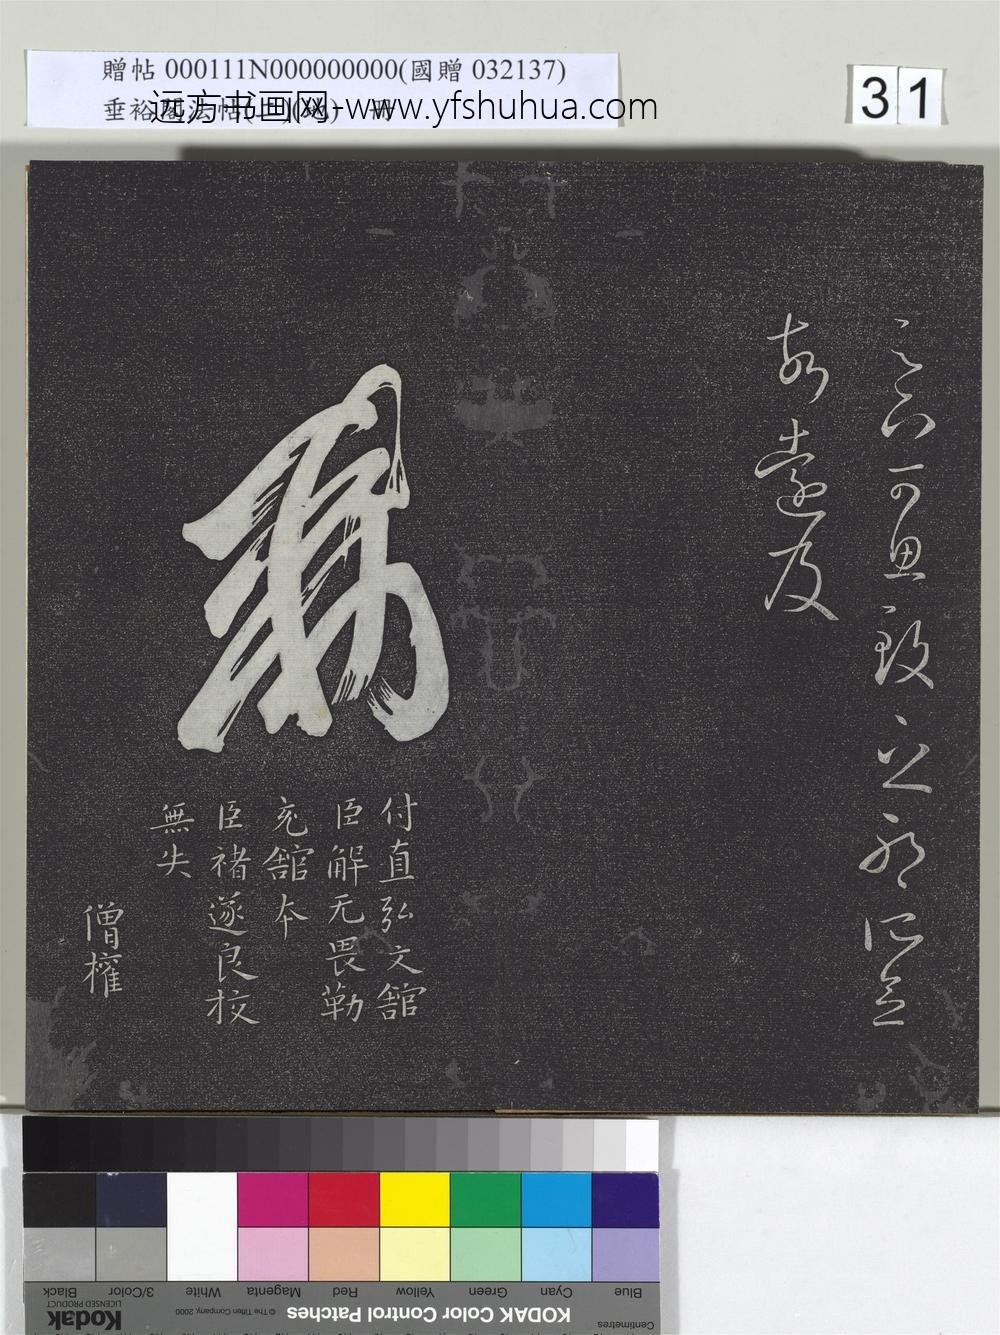 贈帖 000111N000000000(國贈 032137)
垂裕閣法帖 冊
远方书画网-www.yfshuhua.com
31
足下可思致之耶所念
故遠及
勅
付直弘文舘
臣解无畏勒
充舘本
臣褚遂良校
無失
僧權
Blue Cyan Green Yellow Red Magenta White 3/Color Black
Centimetres
KODAK Color Control Patches
© The Tiffen Company, 2000
Kodak
LICENSED PRODUCT